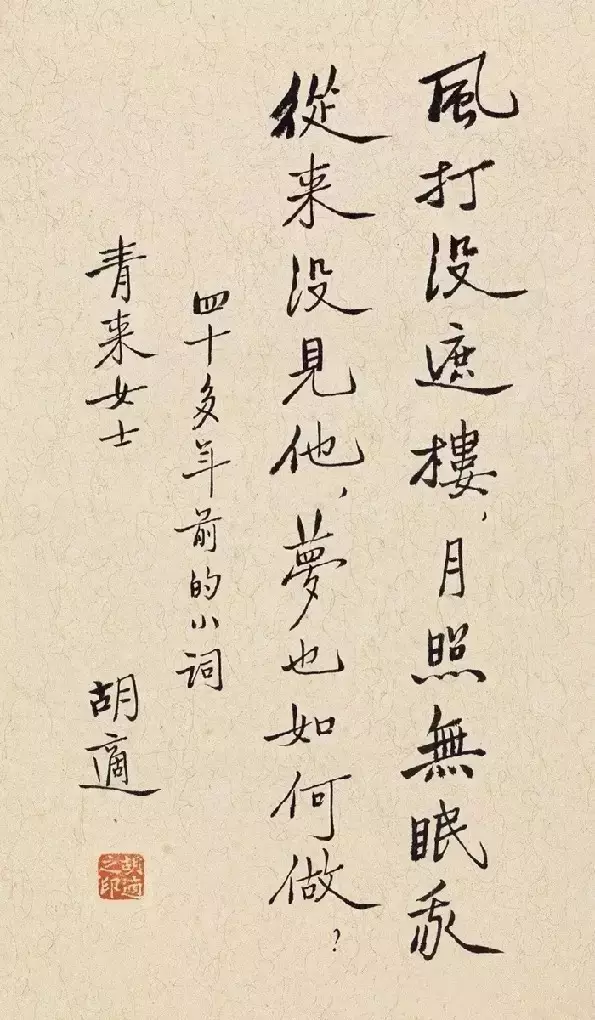 風打没遮樓,月照無眠我
從来没見他,夢也如何做?
四十多年前的小詞
青来女士
胡適
胡適之印